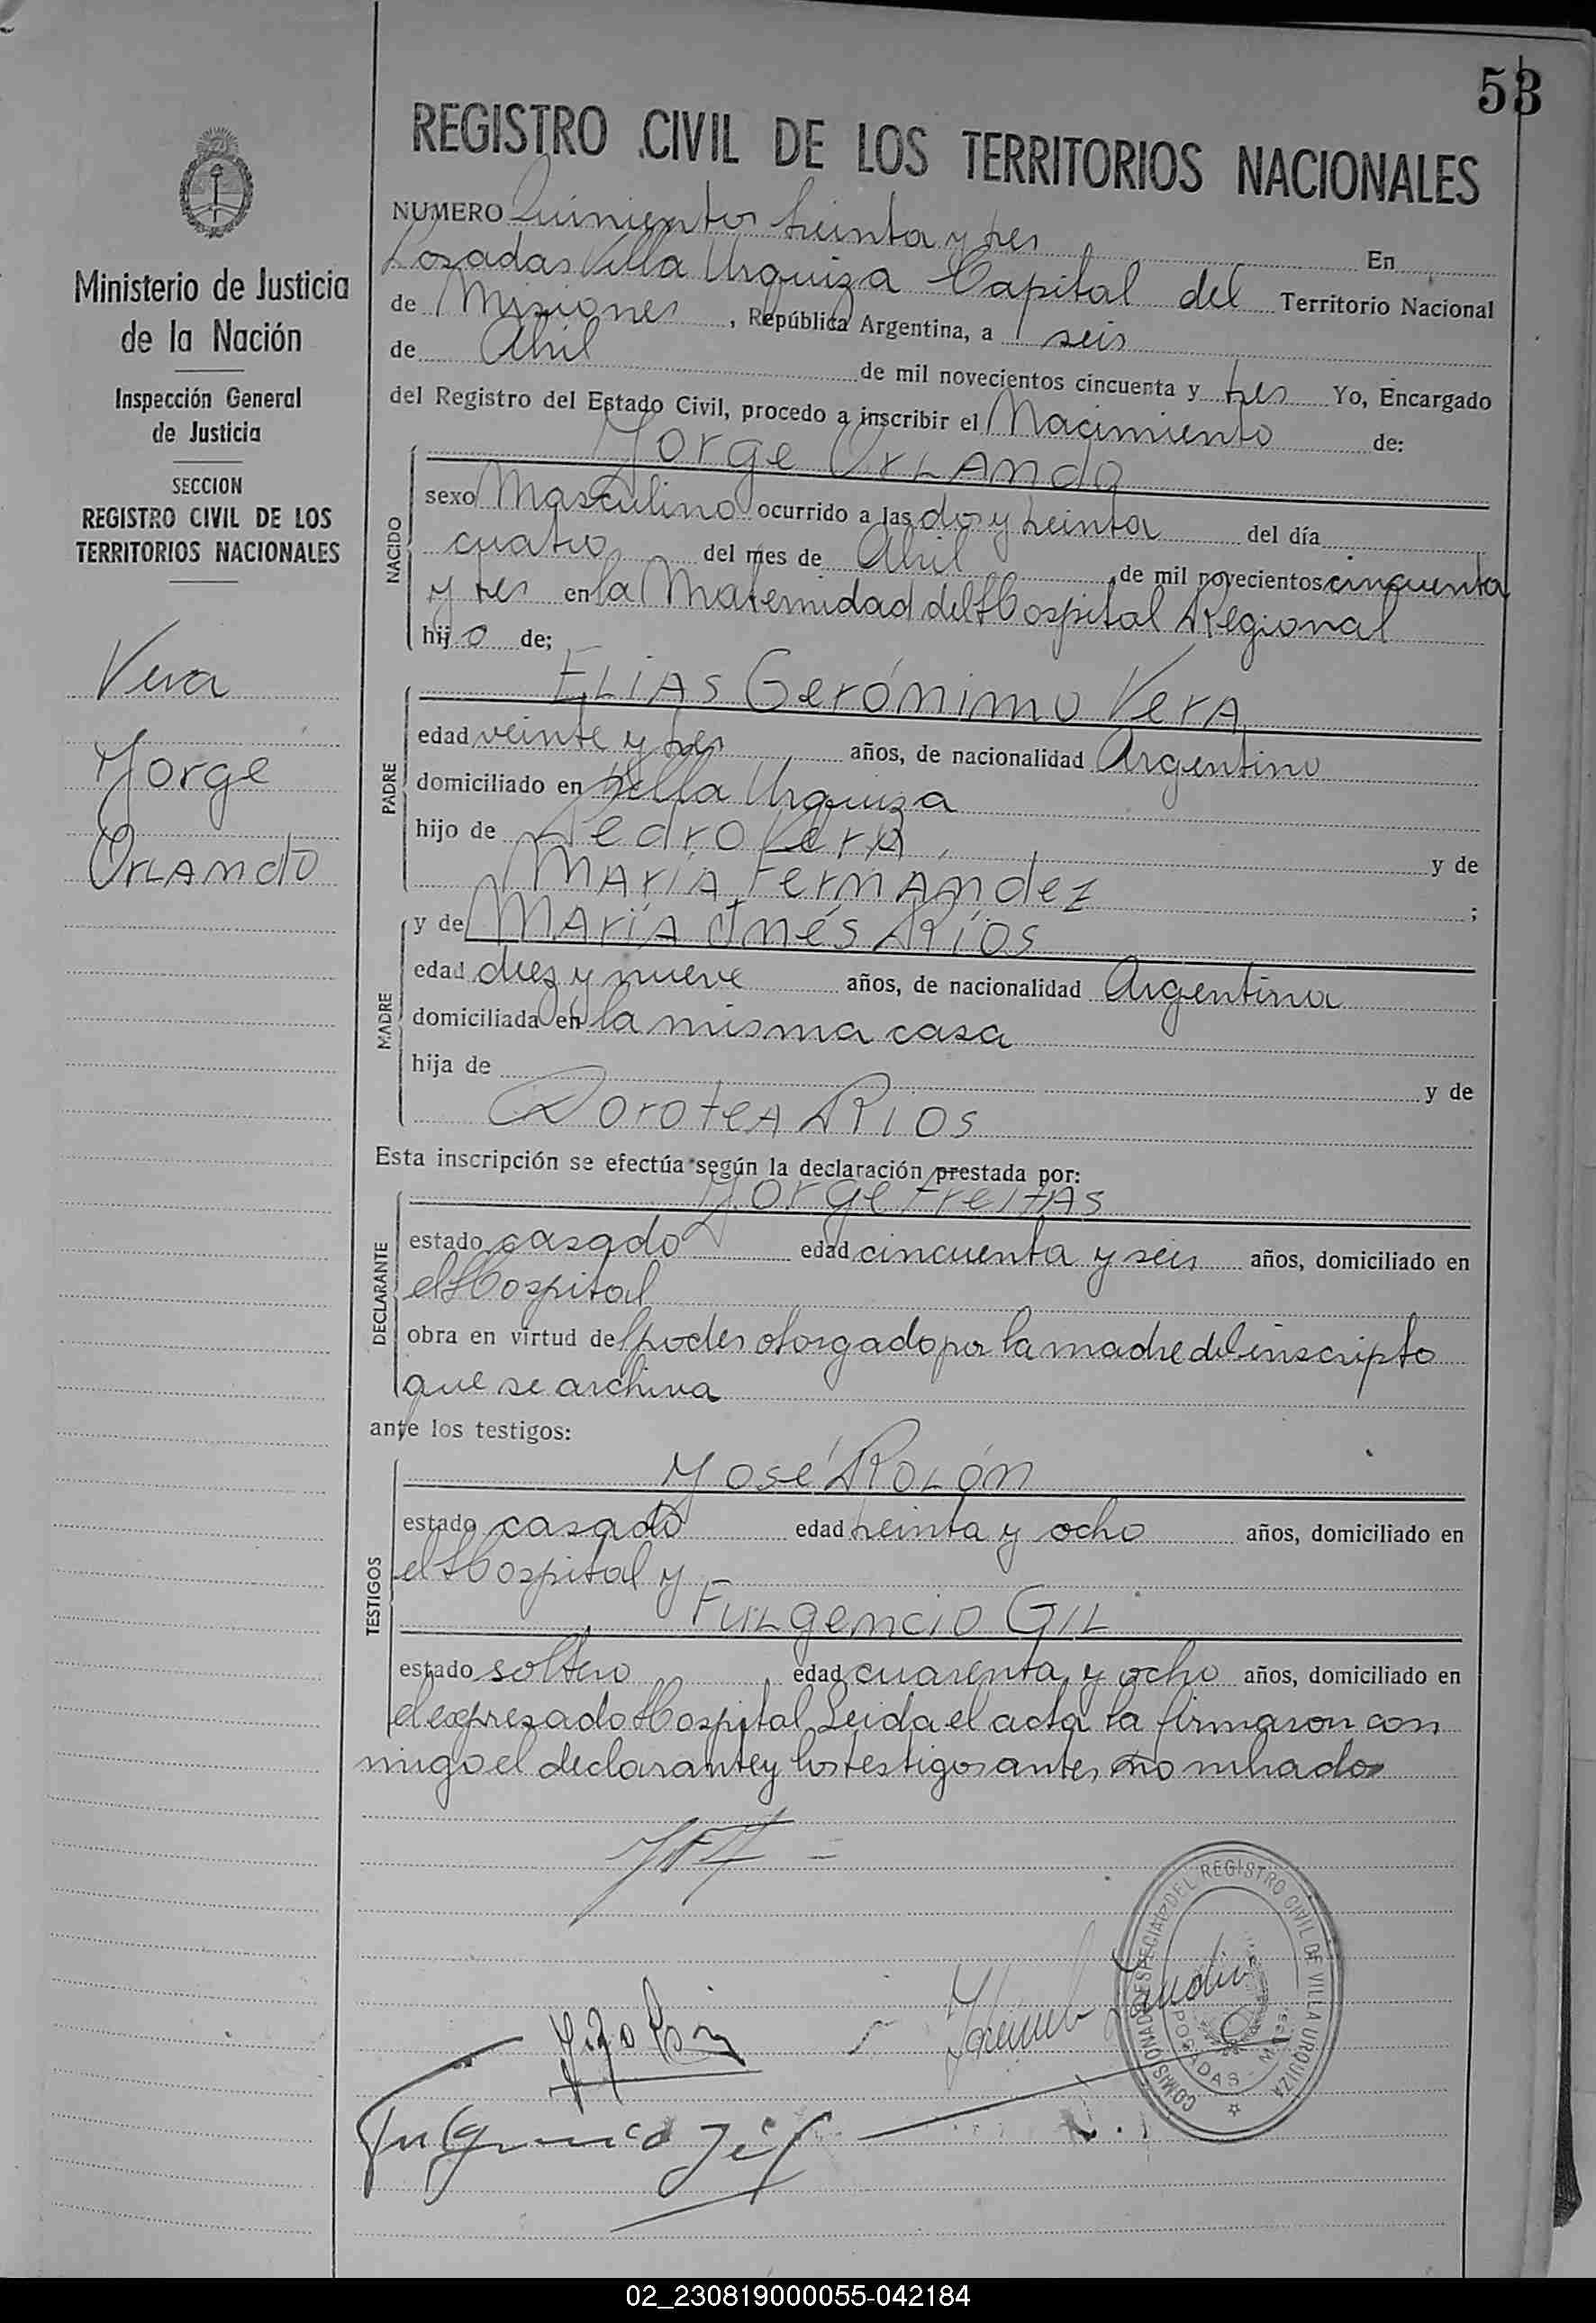 53
REGISTRO CIVIL DE LOS TERRITORIOS NACIONALES
Ministerio de Justicia
de la Nación
Inspección General
de Justicia
SECCION
REGISTRO CIVIL DE LOS
TERRITORIOS NACIONALES
Vera
Jorge
Orlando
NUMERO Quinientos treinta y tres En
Posadas Villa Urquiza Capital del Territorio Nacional
de Misiones, República Argentina, a seis
de Abril de mil novecientos cincuenta y tres Yo, Encargado
del Registro del Estado Civil, procedo a inscribir el Nacimiento de:
Jorge Orlando
NACIDO
sexo Masculino ocurrido a las dos y treinta del día
cuatro del mes de Abril de mil novecientos cincuenta
y tres en la Maternidad del Hospital Regional
hijo de;
Elias Gerónimo Vera
PADRE
edad veinte y tres años, de nacionalidad Argentino
domiciliado en Villa Urquiza
hijo de Pedro Vera y de
María Fernandez ;
MADRE
y de María Inés Ríos
edad diez y nueve años, de nacionalidad Argentina
domiciliada en la misma casa
hija de y de
Dorotea Rios
Esta inscripción se efectúa según la declaración prestada por:
Jorge Freitas
DECLARANTE
estado casado edad cincuenta y seis años, domiciliado en
el Hospital
obra en virtud del poder otorgado por la madre del inscripto
que se archiva
ante los testigos:
José Rolón
TESTIGOS
estado casado edad treinta y ocho años, domiciliado en
el Hospital y
Fulgencio Gil
estado soltero edad cuarenta y ocho años, domiciliado en
el expresado Hospital Leida el acta la firmaron con
migo el declarante y los testigos antes nombrados
Fulgencio Gil
COMISIONADO ESPECIAL DEL REGISTRO CIVIL DE VILLA URQUIZA
POSADAS - MNES.
02_230819000055-042184